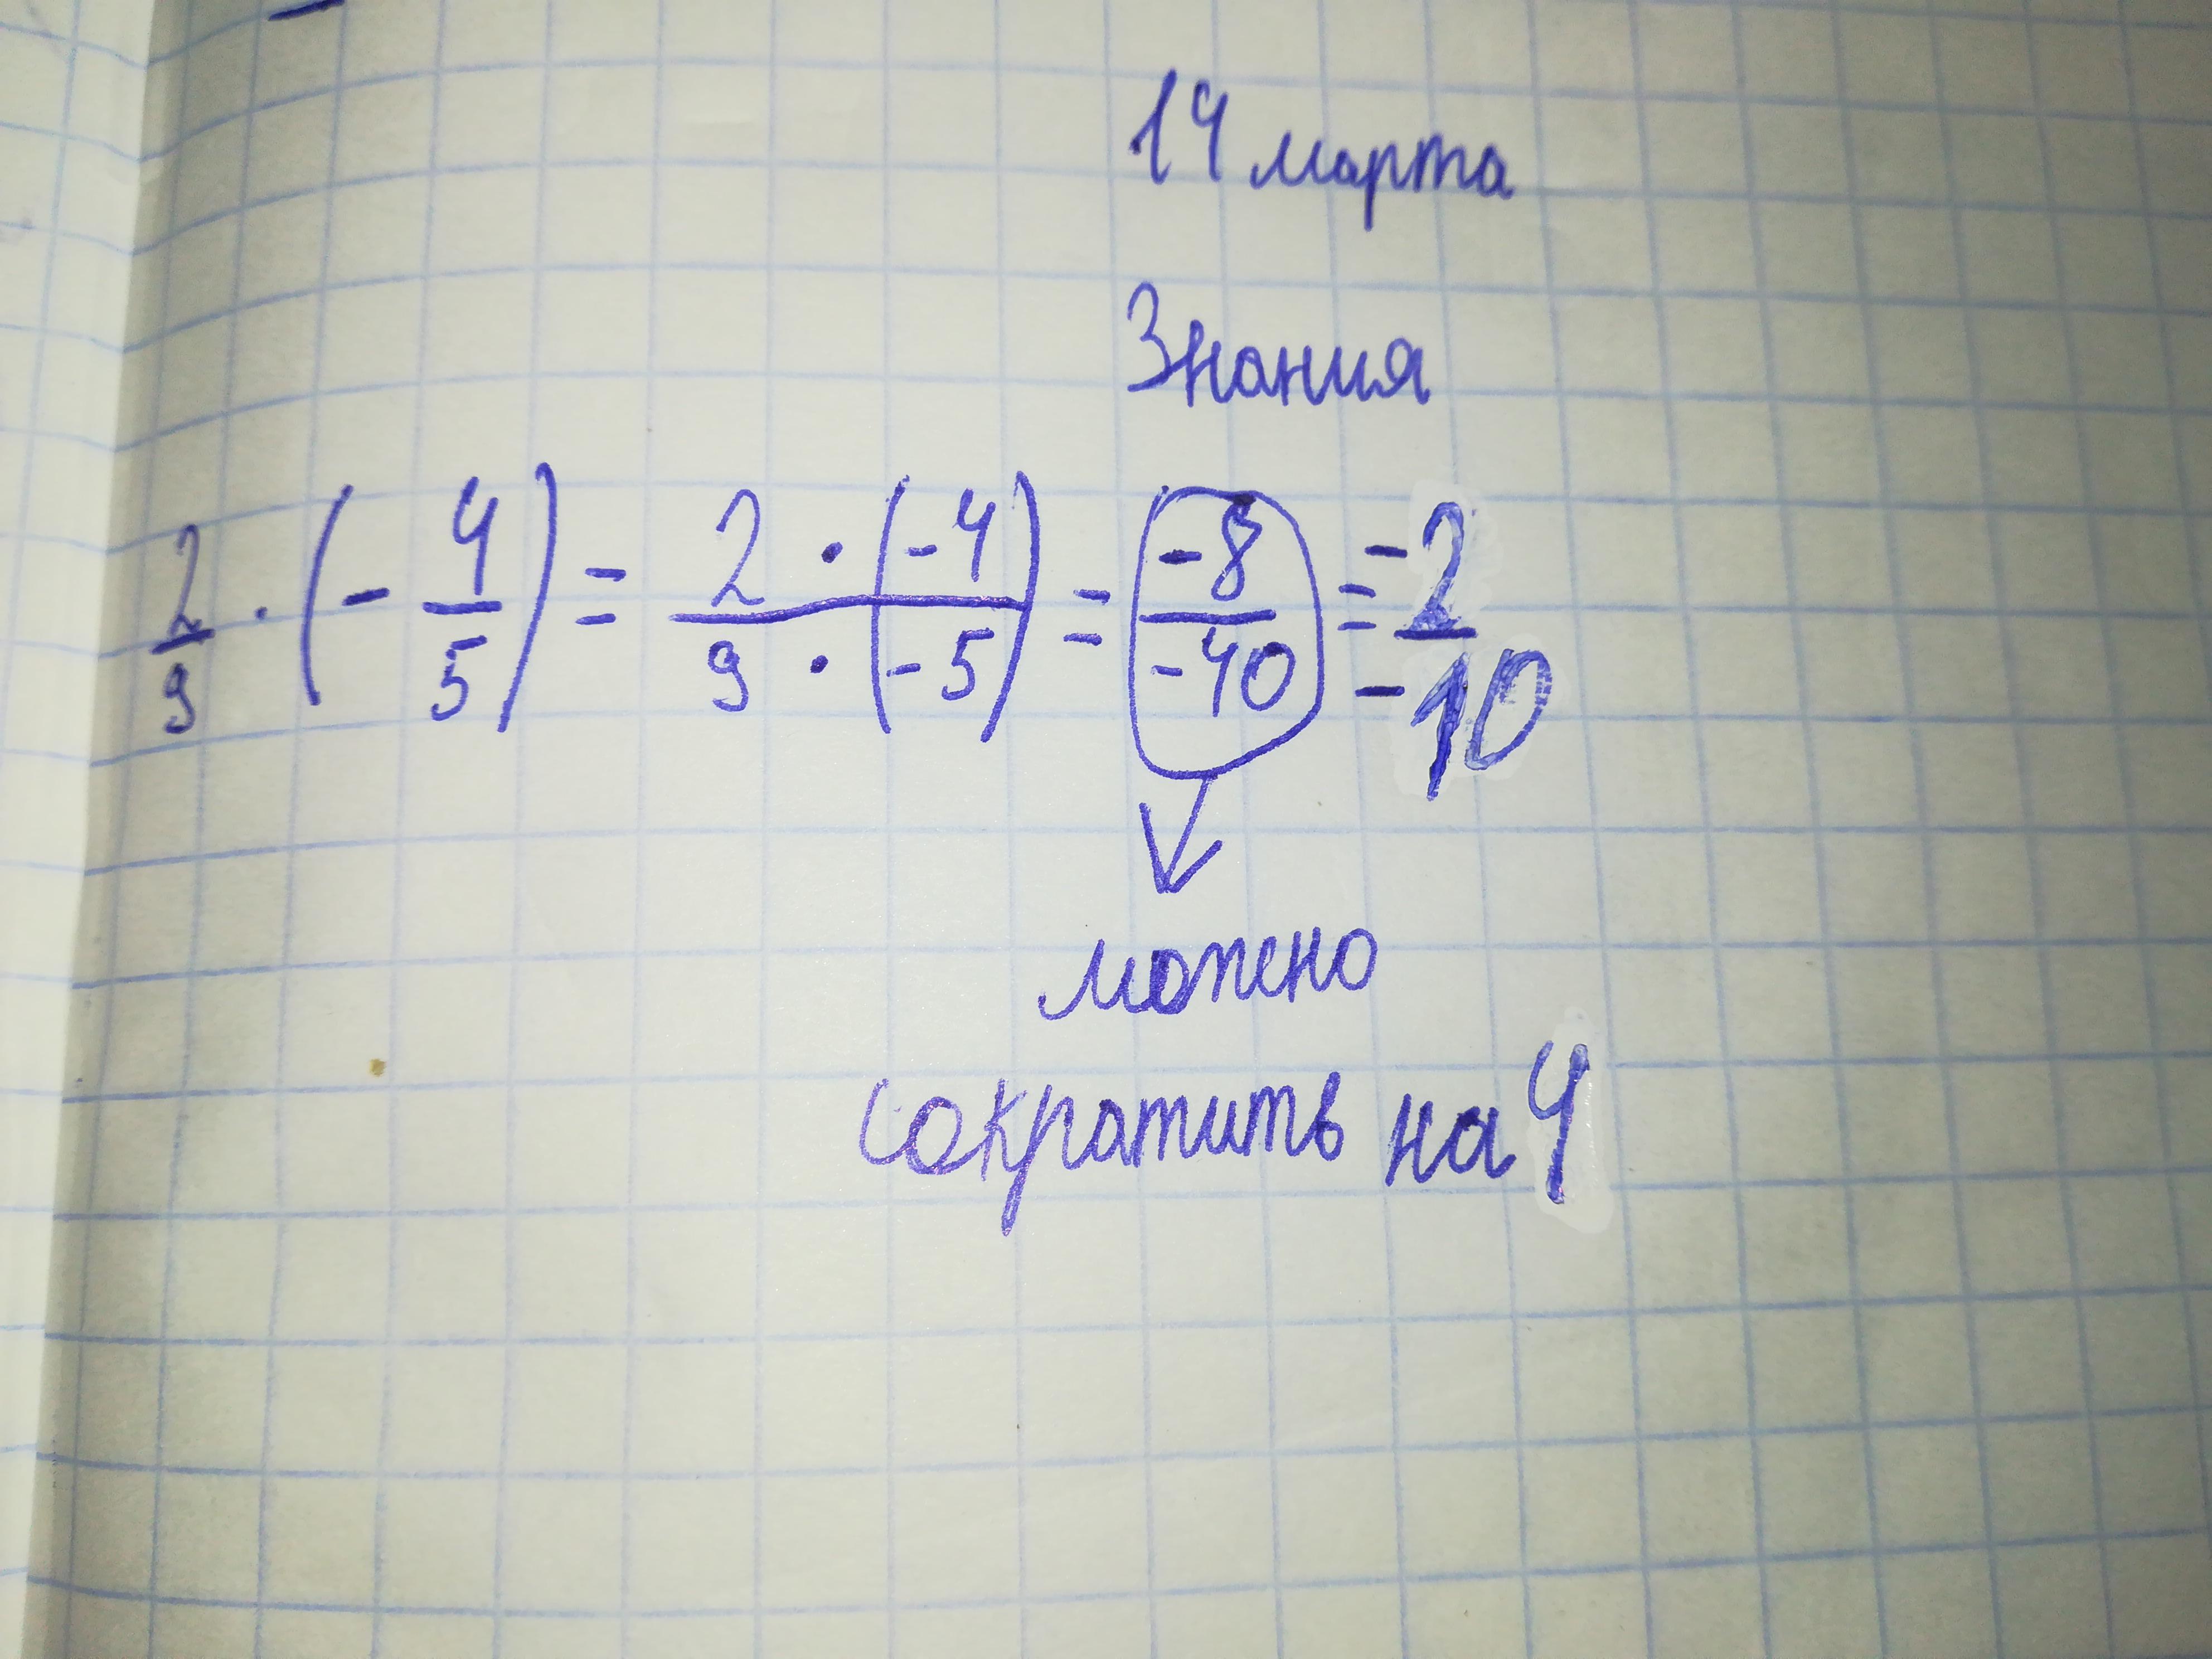 14 марта
Знания
2/9 · (- 4/5) = 2 · (-4) / 9 · (-5) = -8/-40 = -2/-10
можно
сократить на 4